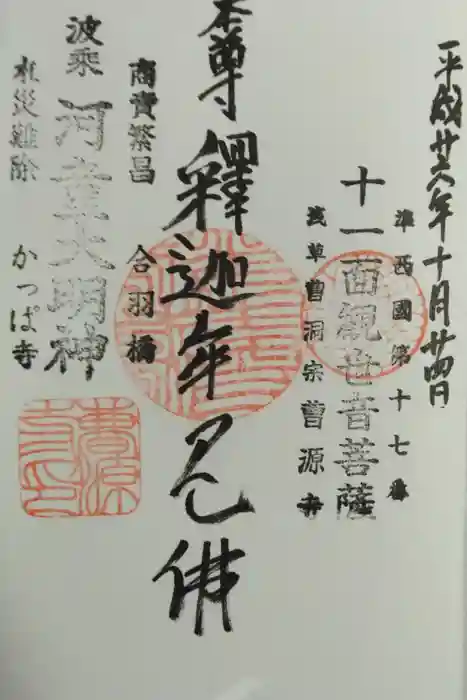 平成廿六年十月廿四日
準西國第十七番
十一面観世音菩薩
浅草曹洞宗曹源寺
本尊釋迦牟尼佛
商賣繁昌 合羽橋
波乘河童大明神
水災難除 かっぱ寺
曹源寺印